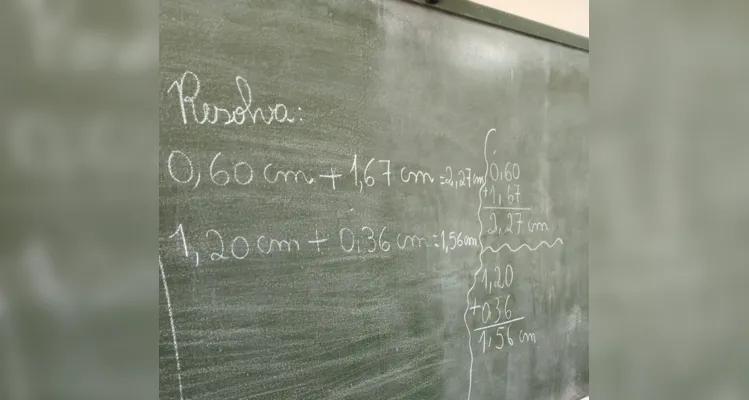 Resolva:
0,60 cm + 1,67 cm = 2,27 cm
1,20 cm + 0,36 cm = 1,56 cm
0,60
+1,67
2,27 cm
1,20
+0,36
1,56 cm